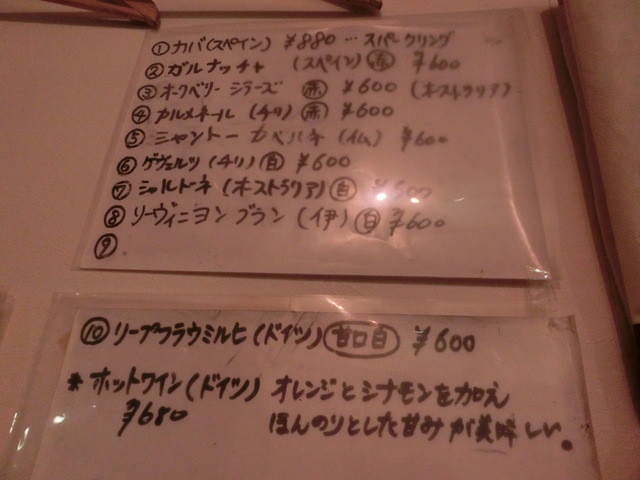 ① カバ(スペイン) ¥880 … スパークリング
② ガルナッチャ (スペイン) 赤 ¥600
③ オークベリー シラーズ 赤 ¥600 (オーストラリア)
④ カルメネール (チリ) 赤 ¥600
⑤ シャントー カベルネ ¥600
⑥ ゲヴェルツ (チリ) 白 ¥600
⑦ シャルドーネ (オーストラリア) 白
⑧ ソーヴィニヨン ブラン (伊) 白 ¥600
⑨
⑩ リープフラウミルヒ (ドイツ) 甘口白 ¥600
* ホットワイン (ドイツ) オレンジとシナモンを加え
¥680 ほんのりとした甘みが美味しい。